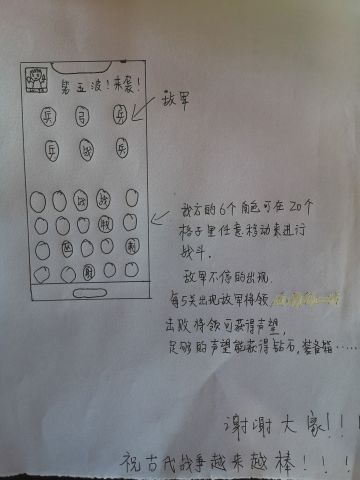 第五波!来袭!
兵 弓 兵
敌军
兵 战 兵
我方的6个角色可在20个
格子里任意移动来进行
战斗.
敌军不停的出现.
每5关出现敌军将领
击败将领可获得声望,
足够的声望能获得钻石,装备箱……
谢谢大家!!!
祝古代战争越来越棒!!!!